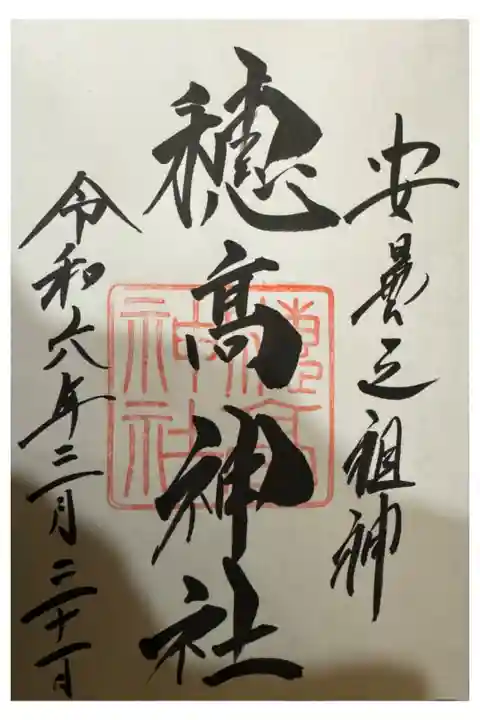 安曇之祖神
穂髙神社
令和六年三月二十一日
穂高
神社